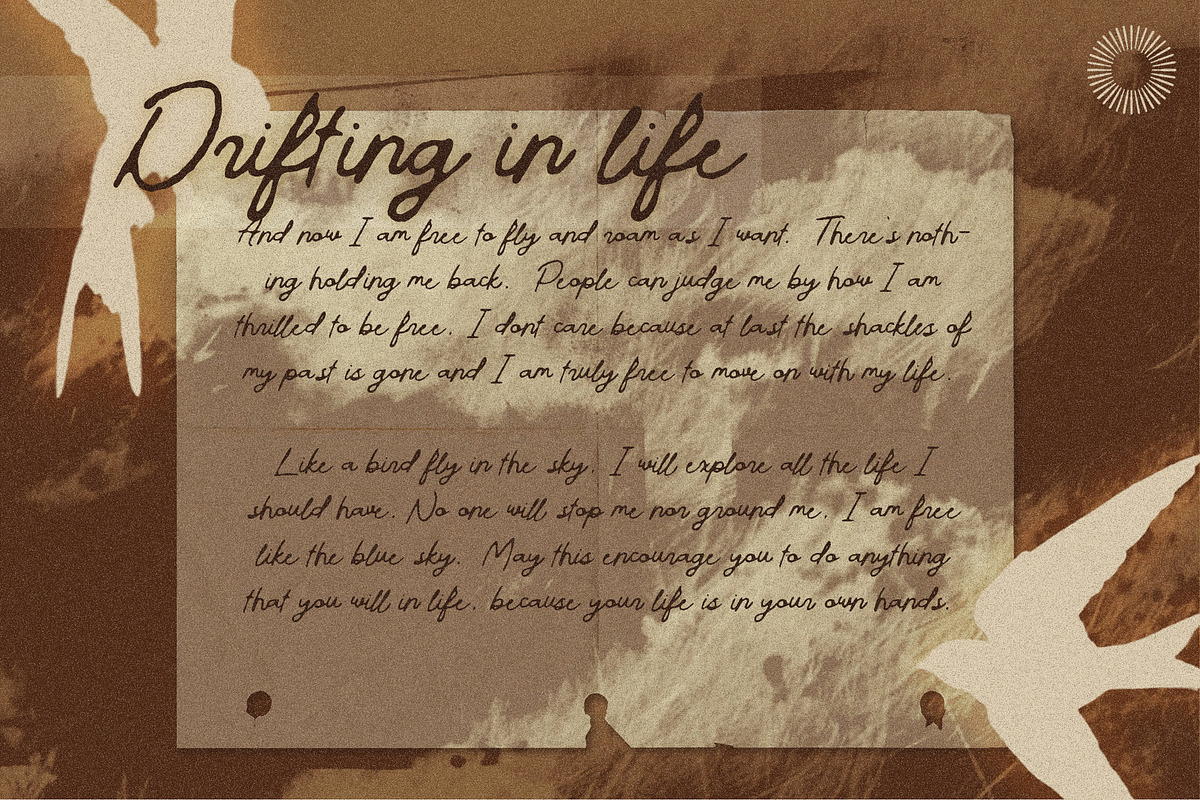 Drifting in life
And now I am free to fly and roam as I want. There's noth-
ing holding me back. People can judge me by how I am
thrilled to be free. I dont care because at last the shackles of
my past is gone and I am truly free to move on with my life.
Like a bird fly in the sky. I will explore all the life I
should have. No one will stop me nor ground me. I am free
like the blue sky. May this encourage you to do anything
that you will in life. because your life is in your own hands.